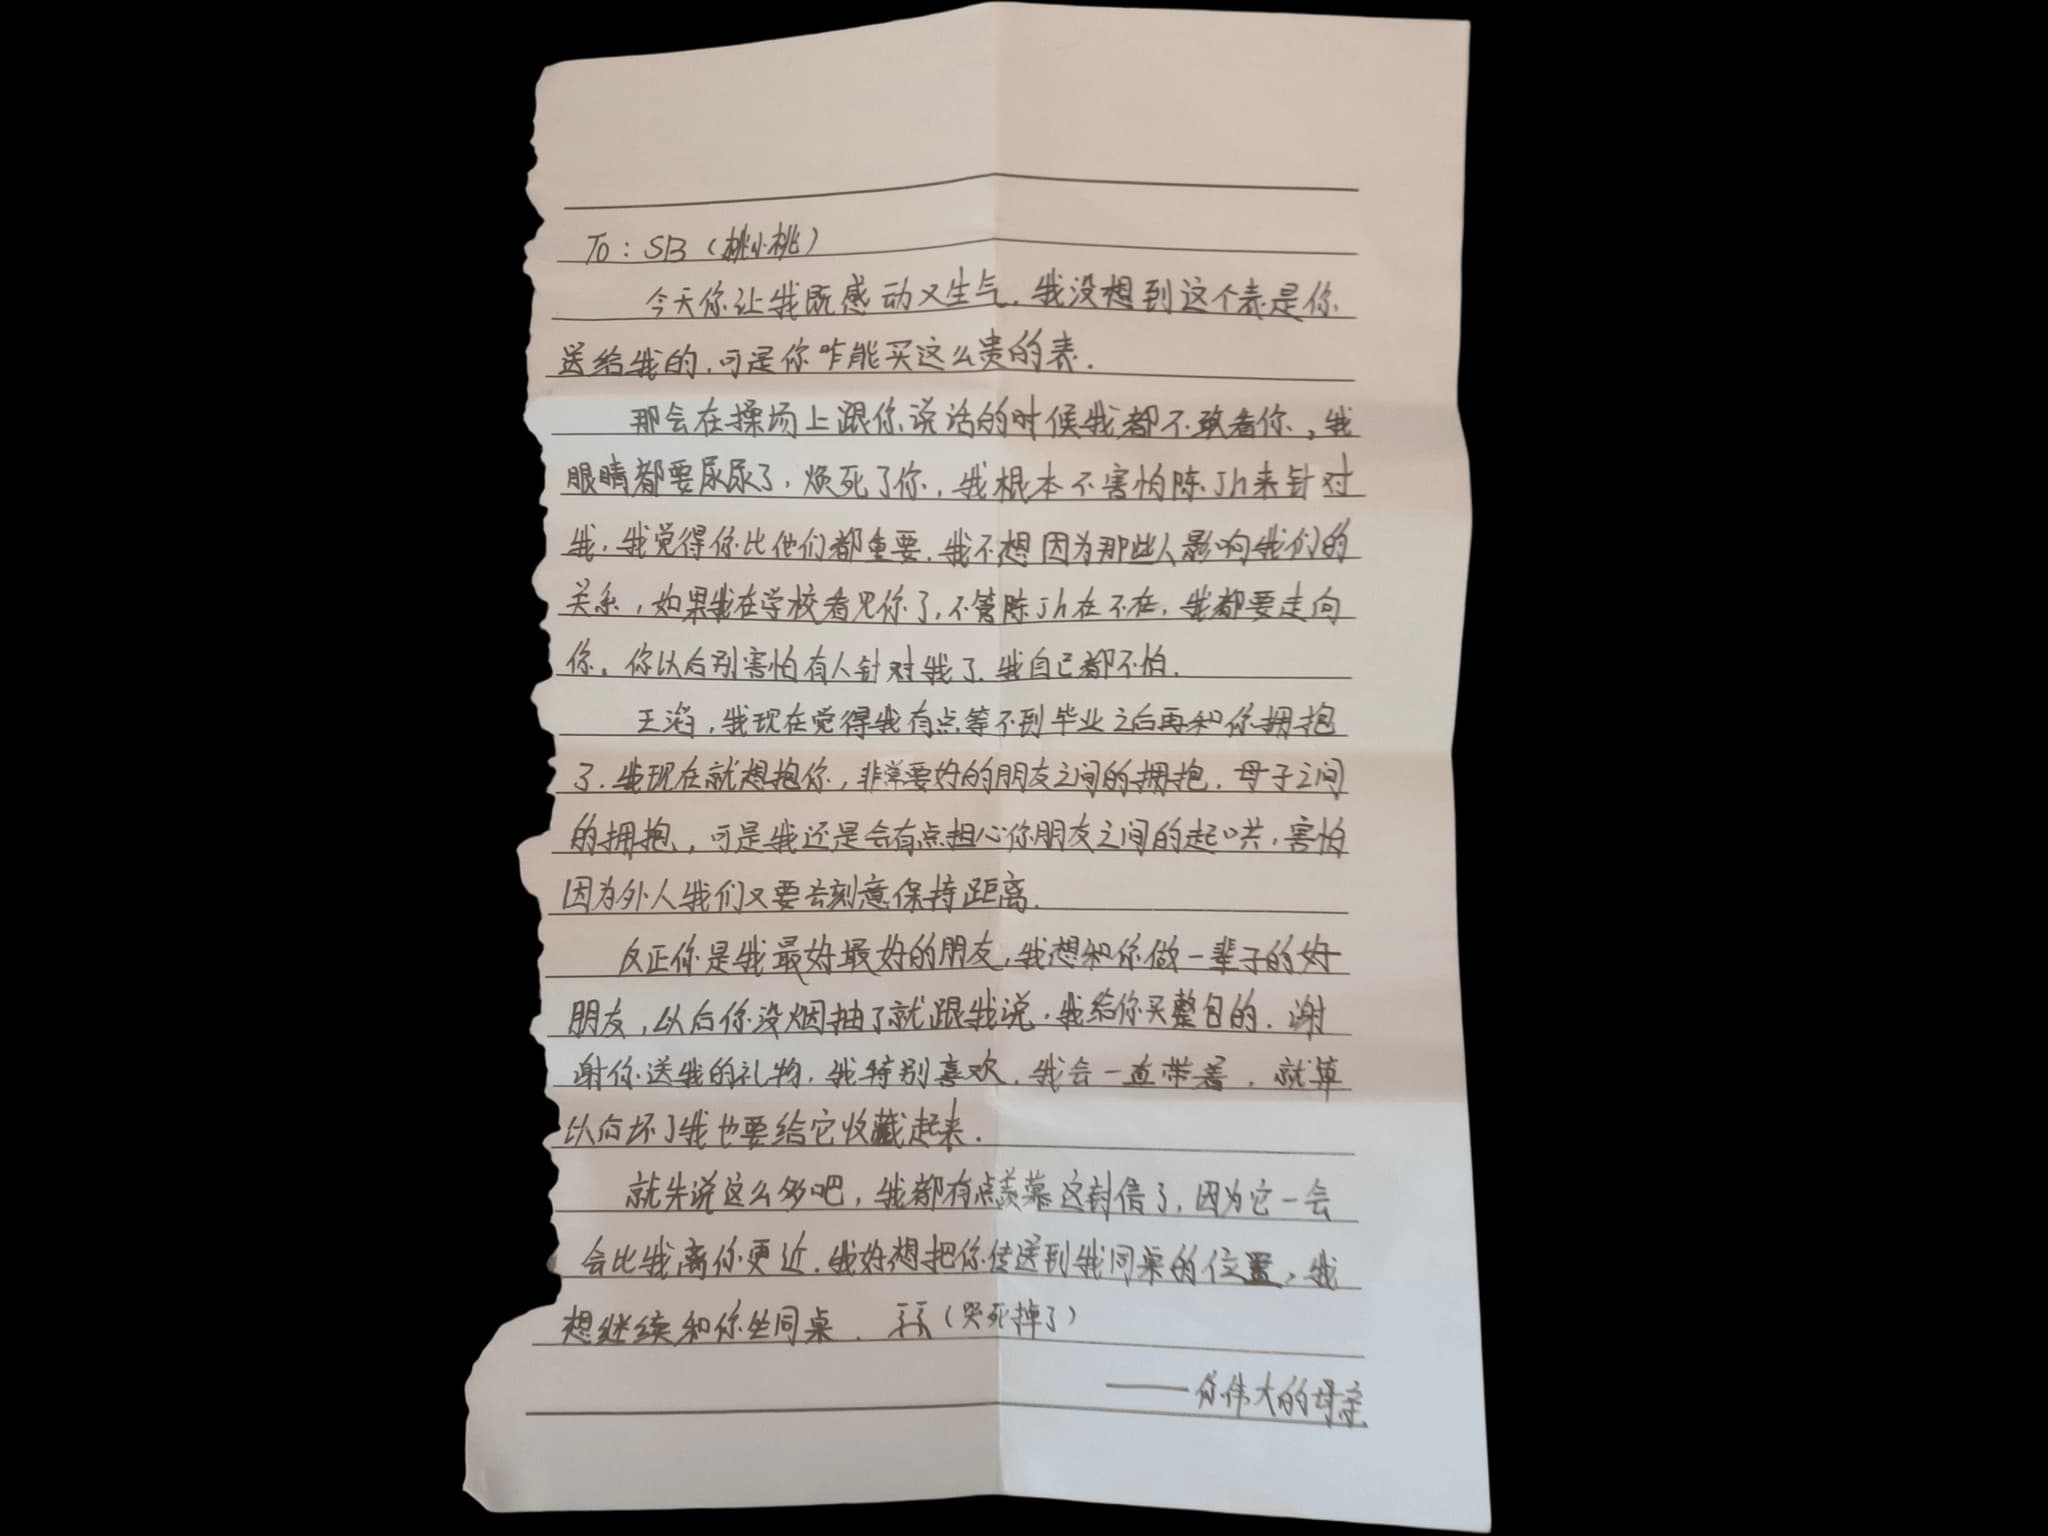 To：SB（桃小桃）
今天你让我既感动又生气，我没想到这个表是你
送给我的，可是你咋能买这么贵的表．
那会在操场上跟你说话的时候我都不敢看你，我
眼睛都要尿尿了，烦死了你，我根本不害怕陈Jh来针对
我，我觉得你比他们都重要，我不想因为那些人影响我们的
关系，如果我在学校看见你了，不管陈Jh在不在，我都要走向
你。你以后别害怕有人针对我了，我自己都不怕．
王滔，我现在觉得我有点等不到毕业之后再和你拥抱
了．我现在就想抱你，非常要好的朋友之间的拥抱．母子之间
的拥抱，可是我还是会有点担心你朋友之间的起哄，害怕
因为外人我们又要去刻意保持距离．
反正你是我最好最好的朋友，我想和你做一辈子的好
朋友，以后你没烟抽了就跟我说，我给你买整包的．谢
谢你送我的礼物，我特别喜欢，我会一直带着，就算
以后坏了我也要给它收藏起来．
就先说这么多吧，我都有点羡慕这封信了，因为它一会
会比我离你更近．我好想把你传送到我同桌的位置，我
想继续和你坐同桌．（哭死掉了）
——你伟大的母亲